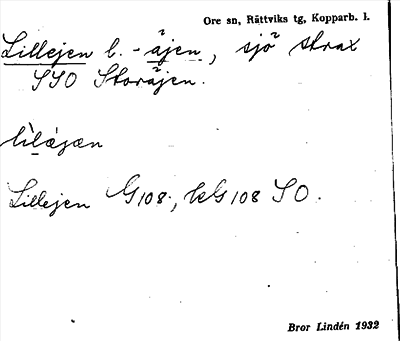 Ore sn, Rättviks tg, Kopparb. l.
Lillejen l. -åjen, sjö strax
SSO Storåjen.
lìlåjæn
Lillejen G108., ekG108 SO.
Bror Lindén 1932